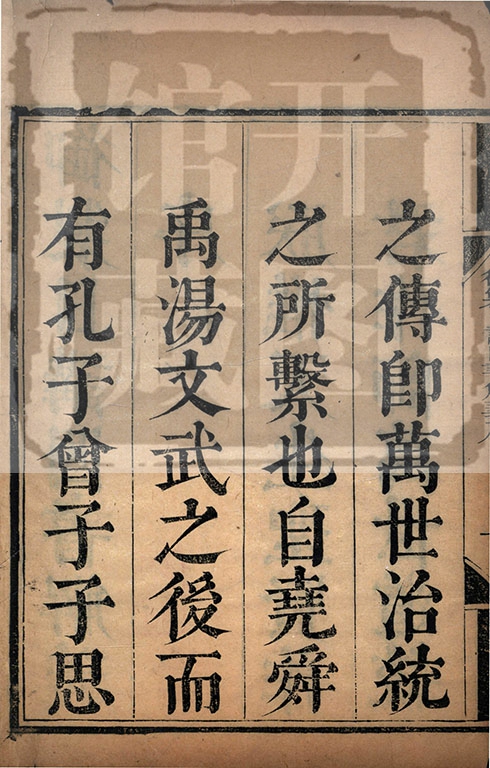 之傳卽萬世治統
之所繫也自堯舜
禹湯文武之後而
有孔子曾子子思
开图
馆藏